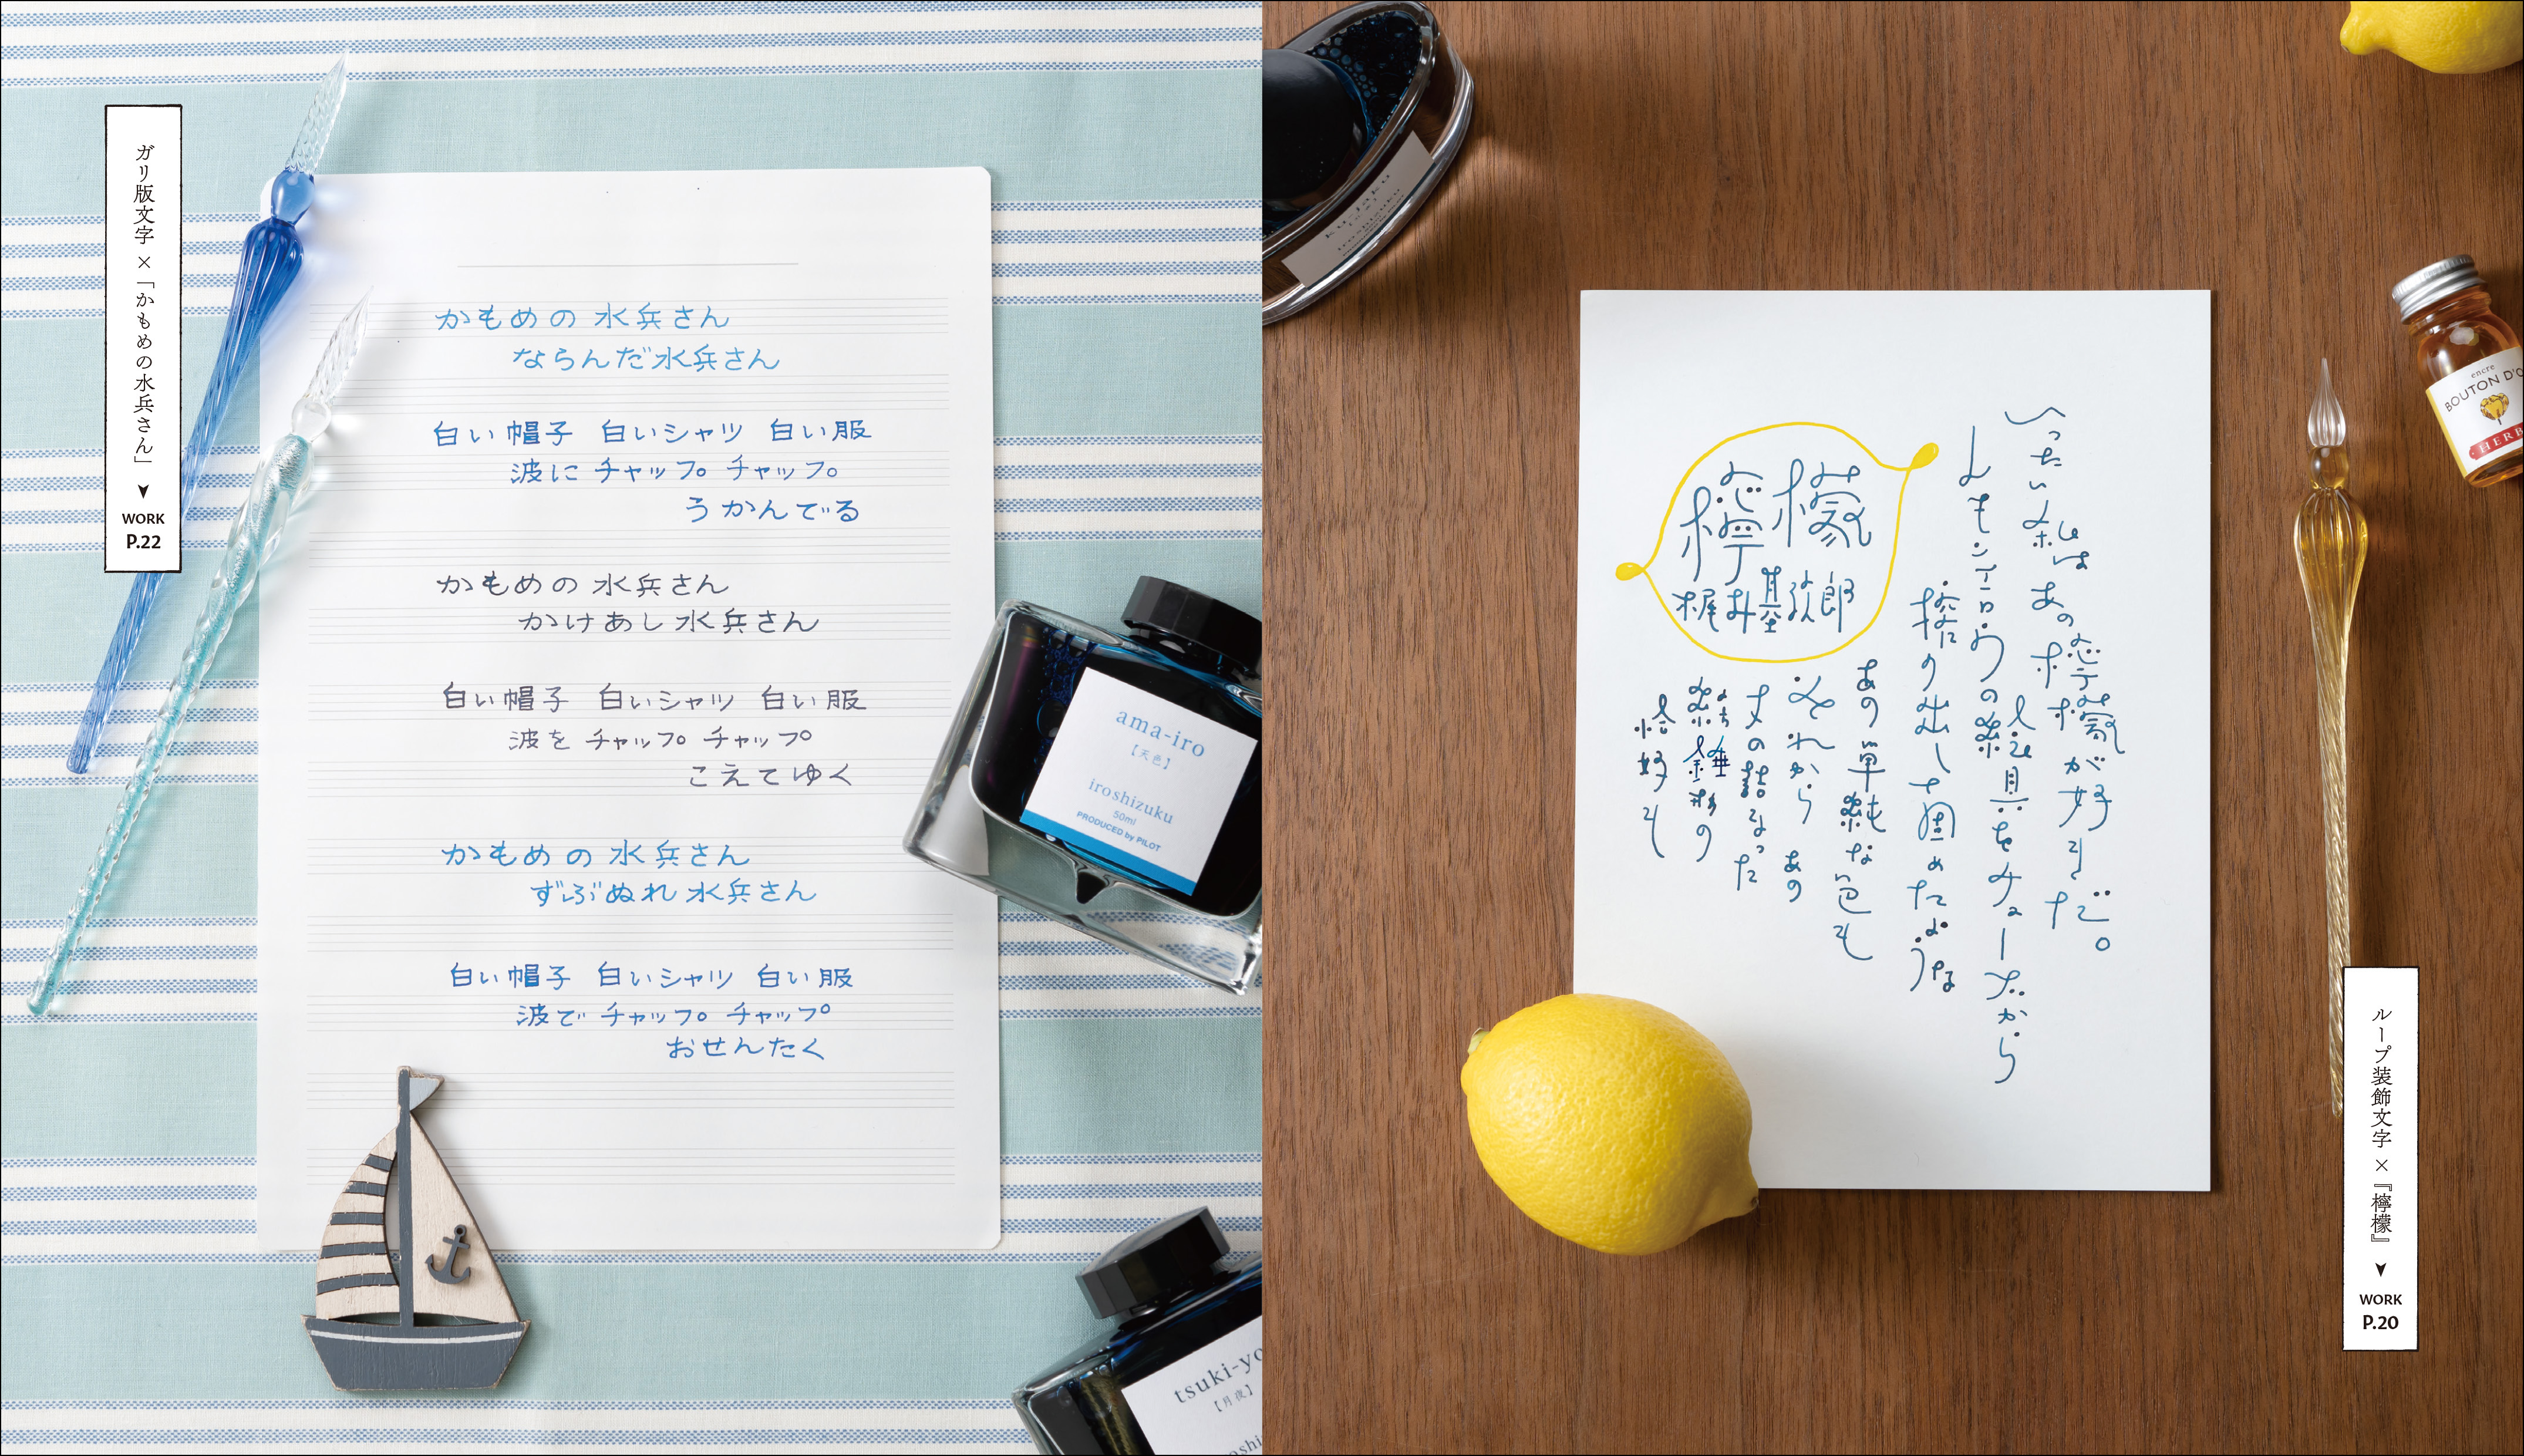 いったい私はあの檸檬が好きだ。
レモンエロウの絵具をチューブから
搾り出して固めたような
あの単純な色も
それからあの
丈の詰まった
紡錘形の
恰好も
檸檬
梶井基次郎
encre
BOUTON D'O
HERB
ku-jaku
iroshizuku
ループ装飾文字×『檸檬』
WORK
P.20
ガリ版文字×「かもめの水兵さん」
WORK
P.22
かもめの 水兵さん
ならんだ水兵さん
白い帽子 白いシャツ 白い服
波に チャップ チャップ
うかんでる
かもめの 水兵さん
かけあし 水兵さん
白い帽子 白いシャツ 白い服
波を チャップ チャップ
こえてゆく
かもめの 水兵さん
ずぶぬれ 水兵さん
白い帽子 白いシャツ 白い服
波で チャップ チャップ
おせんたく
ama-iro
【天色】
iroshizuku
50ml
PRODUCED by PILOT
tsuki-yo
【月夜】